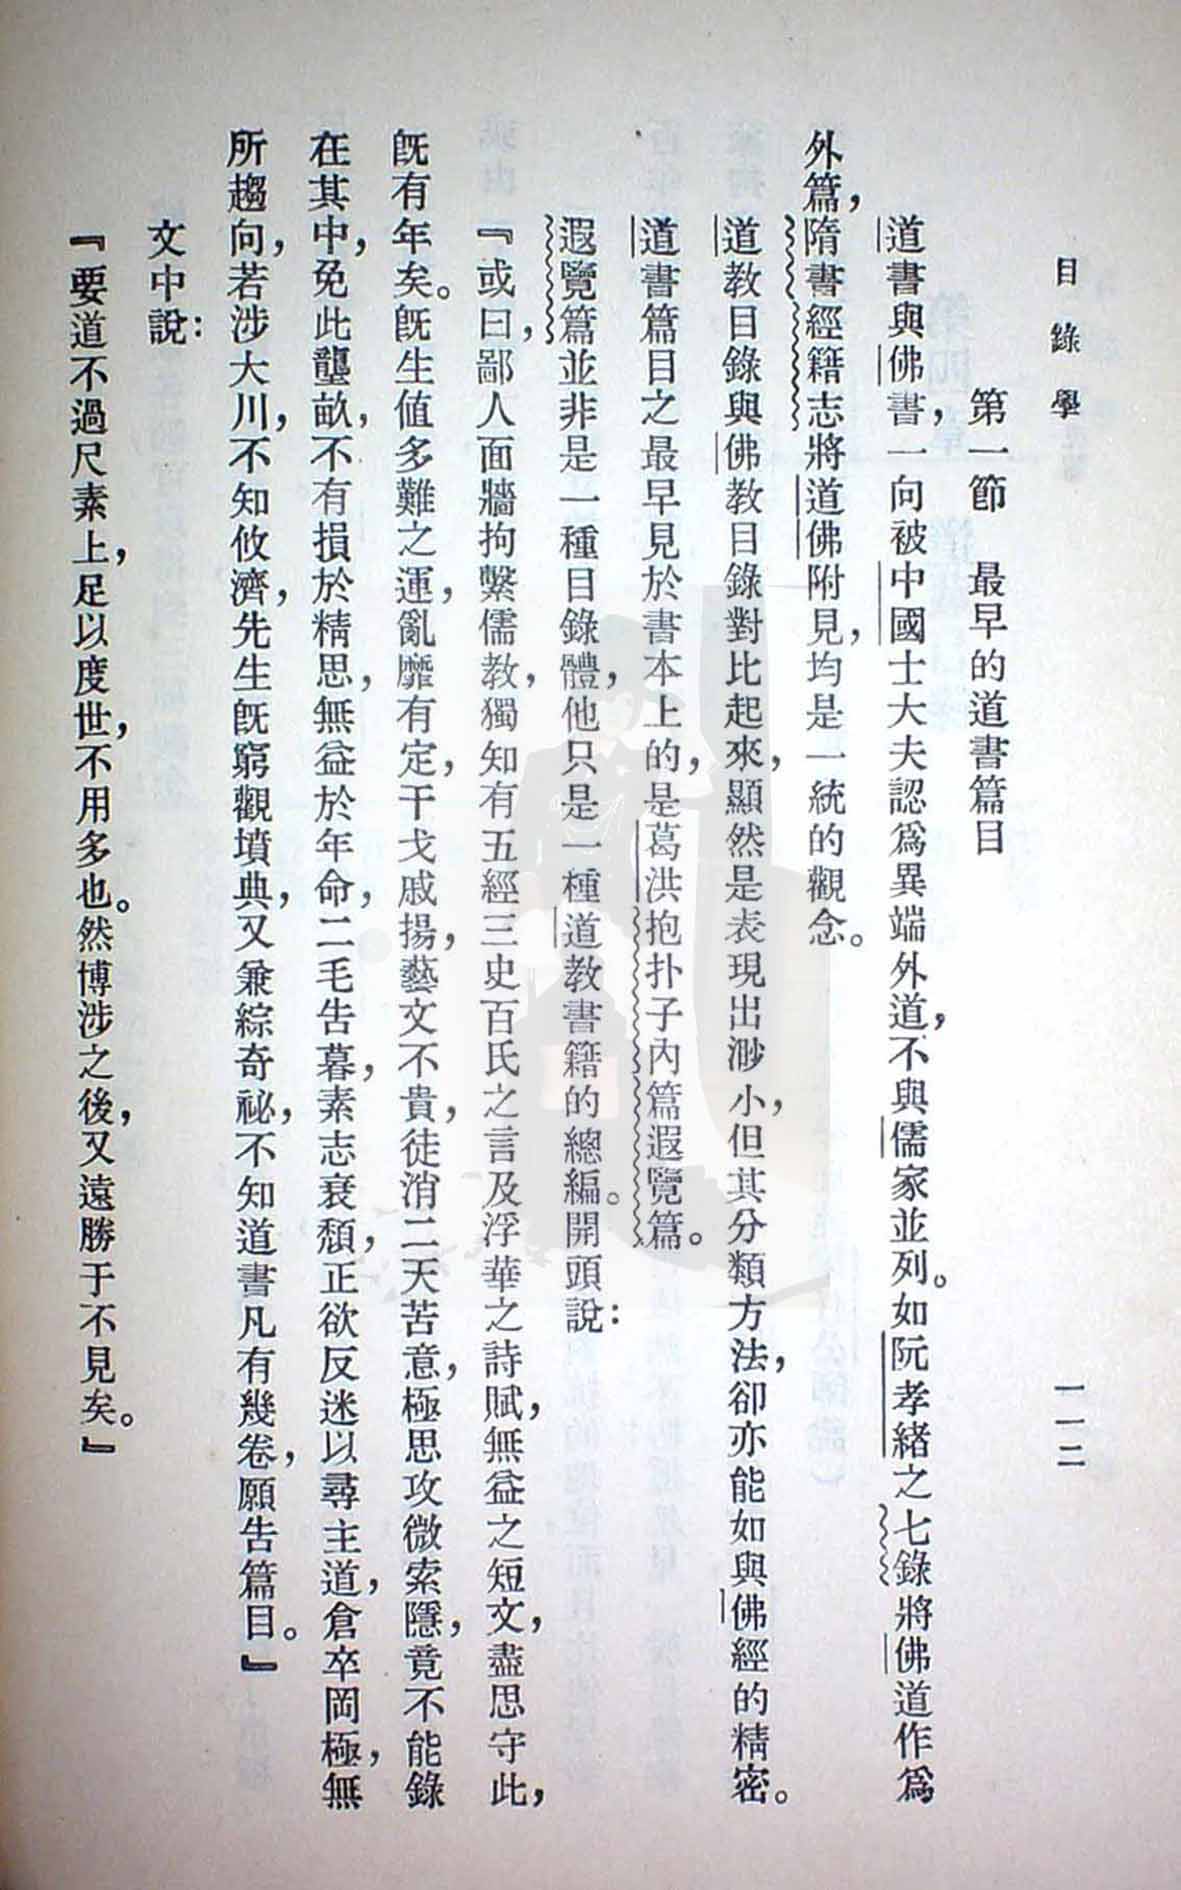 目錄學
一一二
第一節　最早的道書篇目
道書與佛書，一向被中國士大夫認爲異端外道，不與儒家並列。如阮孝緒之七錄將佛道作爲
外篇，隋書經籍志將道佛附見，均是一統的觀念。
道教目錄與佛教目錄對比起來，顯然是表現出渺小，但其分類方法，卻亦能如與佛經的精密。
道書篇目之最早見於書本上的，是葛洪抱扑子內篇遐覽篇。
遐覽篇並非是一種目錄體，他只是一種道教書籍的總編。開頭說：
『或曰，鄙人面牆拘繫儒教，獨知有五經三史百氏之言及浮華之詩賦，無益之短文，盡思守此，
既有年矣。既生值多難之運，亂靡有定，干戈戚揚，藝文不貴，徒消二天苦意，極思攻微索隱，竟不能錄
在其中，免此壟畝，不有損於精思，無益於年命，二毛告暮，素志衰頹，正欲反迷以尋主道，倉卒岡極，無
所趨向，若涉大川，不知攸濟，先生既窮觀墳典，又兼綜奇祕，不知道書凡有幾卷，願告篇目。』
文中說：
『要道不過尺素上，足以度世，不用多也。然博涉之後，又遠勝于不見矣。』